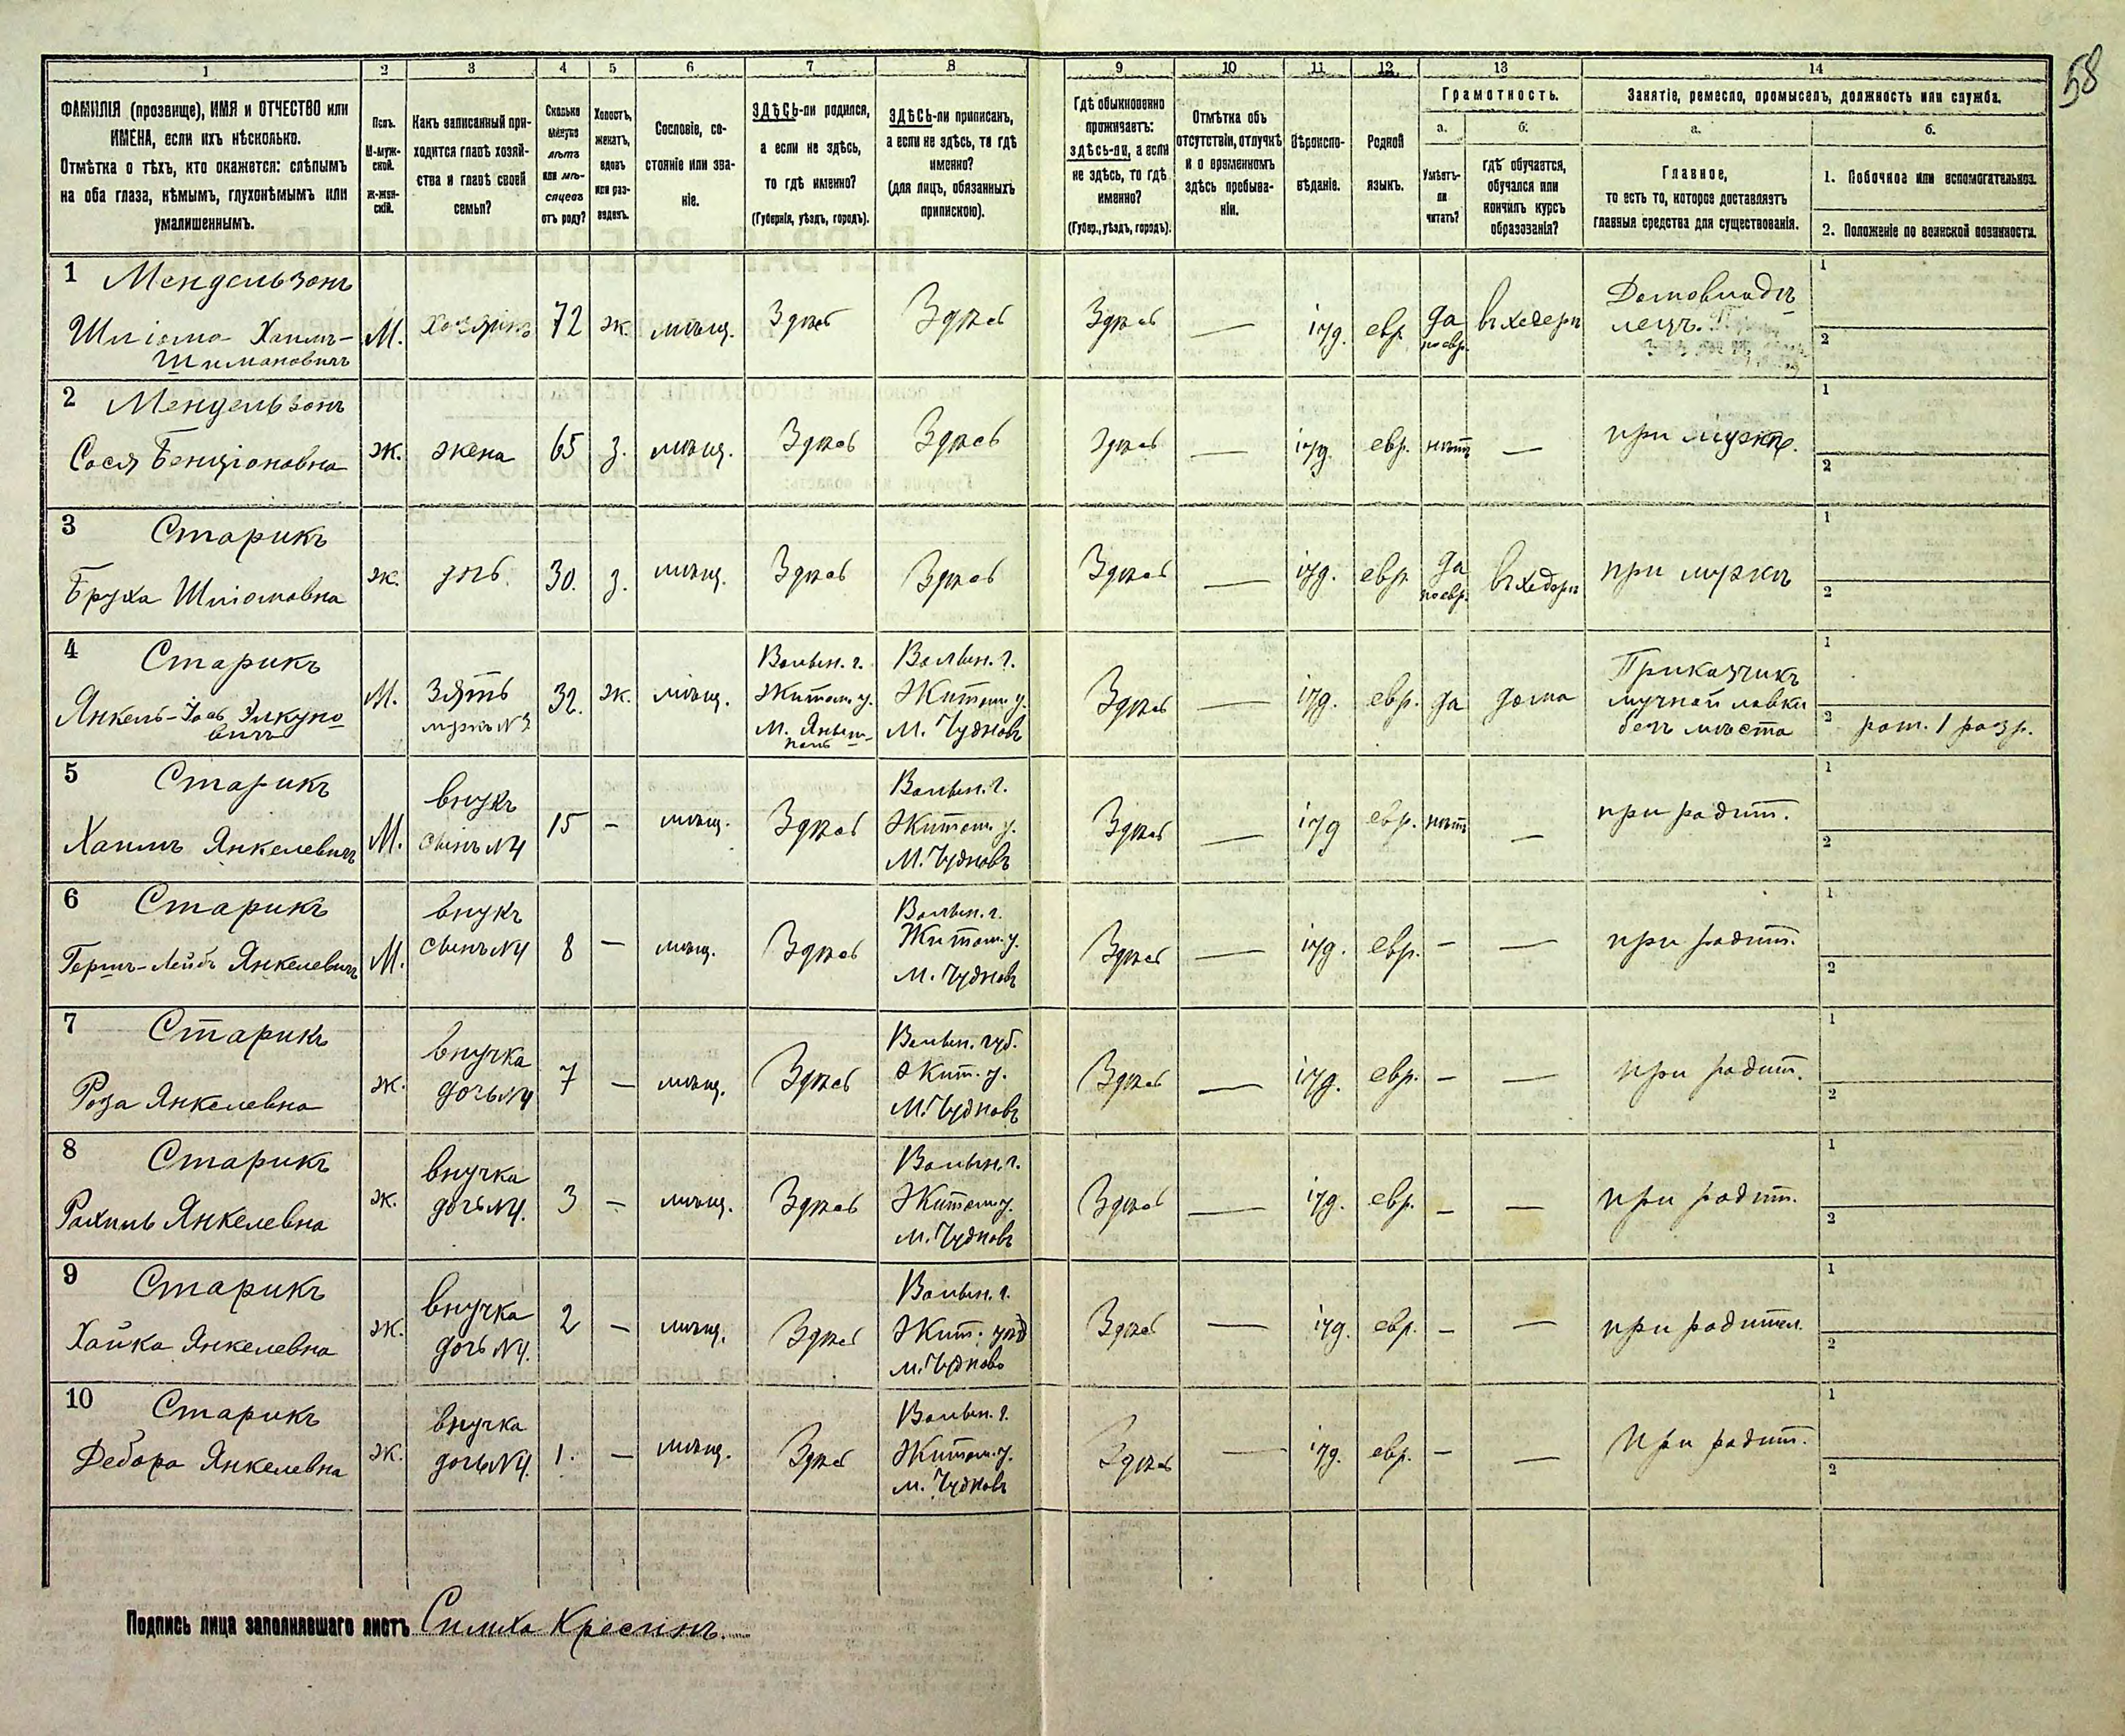 58
1 2 3 4 5 6 7 8 9 10 11 12 13 14
ФАМИЛІЯ (прозвище), ИМЯ и ОТЧЕСТВО или
ИМЕНА, если ихъ нѣсколько.
Отмѣтка о тѣхъ, кто окажется: слѣпымъ
на оба глаза, нѣмымъ, глухонѣмымъ или
умалишеннымъ.
Полъ.
М-муж-
ской.
Ж-жен-
скій.
Какъ записанный при-
ходится главѣ хозяй-
ства и главѣ своей
семьи?
Сколько
минуло
лѣтъ
или мѣ-
сяцевъ
отъ роду?
Холостъ,
женатъ,
вдовъ
или раз-
веденъ.
Сословіе, со-
стояніе или зва-
ніе.
ЗДѢСЬ-ли родился,
а если не здѣсь,
то гдѣ именно?
(Губернія, уѣздъ, городъ).
ЗДѢСЬ-ли приписанъ,
а если не здѣсь, то гдѣ
именно?
(для лицъ, обязанныхъ
припискою).
Гдѣ обыкновенно
проживаетъ:
здѣсь-ли, а если
не здѣсь, то гдѣ
именно?
(Губер., уѣздъ, городъ).
Отмѣтка объ
отсутствіи, отлучкѣ
и о временномъ
здѣсь пребыва-
ніи.
Вѣроиспо-
вѣданіе.
Родной
языкъ.
Грамотность.
а.
Умѣетъ-
ли
читать?
б.
гдѣ обучается,
обучался или
кончилъ курсъ
образованія?
Занятіе, ремесло, промыселъ, должность или служба.
а.
Главное,
то есть то, которое доставляетъ
главныя средства для существованія.
б.
1. Побочное или вспомогательное.
2. Положеніе по воинской повинности.
1 Мендельзонъ
Шліома-Хаимъ-
Шимановичъ
М. хозяинъ 72 ж. мѣщ. Здѣсь Здѣсь Здѣсь — іуд. евр. да
по евр.
въ хедерѣ
Домовладѣ
лецъ.
1
2
2 Мендельзонъ
Сося Бенціоновна
ж. жена 65 з. мѣщ. Здѣсь Здѣсь Здѣсь — іуд. евр. нѣтъ — при мужѣ.
1
2
3 Старикъ
Бруха Шліомовна
ж. дочь. 30. з. мѣщ. Здѣсь Здѣсь Здѣсь — іуд. евр. да
по евр.
въ хедерѣ при мужѣ
1
2
4 Старикъ
Янкель-Іось Элкуно
вичъ
М. Зять
мужъ №3
32. ж. мѣщ.
Волын. г.
Житом. у.
М. Янушполь
Волын. г.
Житом. у.
М. Чудновъ
Здѣсь — іуд. евр. да дома
Приказчикъ
мучной лавки
безъ мѣста
1
2 рат. 1 разр.
5 Старикъ
Хаимъ Янкелевичъ
М. внукъ
сынъ №4
15 — мѣщ. Здѣсь
Волын. г.
Житом. у.
М. Чудновъ
Здѣсь — іуд евр. нѣтъ — при родит.
1
2
6 Старикъ
Гершъ-Лейбъ Янкелевичъ
М. внукъ
сынъ №4
8 — мѣщ. Здѣсь
Волын. г.
Житом. у.
М. Чудновъ
Здѣсь — іуд. евр. — — при родит.
1
2
7 Старикъ
Роза Янкелевна
ж. внучка
дочь №4
7 — мѣщ. Здѣсь
Волын. губ.
Жит. у.
М. Чудновъ
Здѣсь — іуд. евр. — — при родит.
1
2
8 Старикъ
Рахиль Янкелевна
ж. внучка
дочь №4.
3 — мѣщ. Здѣсь
Волын. г.
Житом. у.
м. Чудновъ
Здѣсь — іуд. евр. — — при родит.
1
2
9 Старикъ
Хайка Янкелевна
ж. внучка
дочь №4.
2 — мѣщ. Здѣсь
Волын. г.
Жит. уѣз
м. Чудново
Здѣсь — іуд. евр. — — при родител.
1
2
10 Старикъ
Дебора Янкелевна
ж. внучка
дочь №4.
1. — мѣщ. Здѣсь
Волын. г.
Житом. у.
м. Чудновъ
Здѣсь — іуд. евр. — — При родит.
1
2
Подпись лица заполнявшаго листъ Симха Крессинъ.